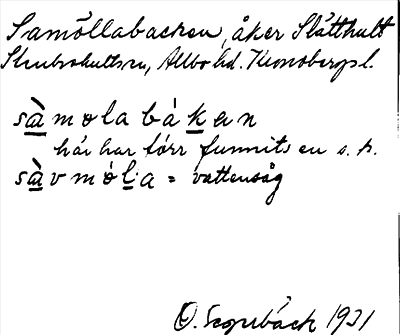 Samöllabacken, åker Slätthult
Stenbrohults sn, Allbo hd. Kronobergs l.
sà̲mola bákan
här har förr funnits en s. k.
sà̲vmóla = vattensåg
O. Segerbäck 1931